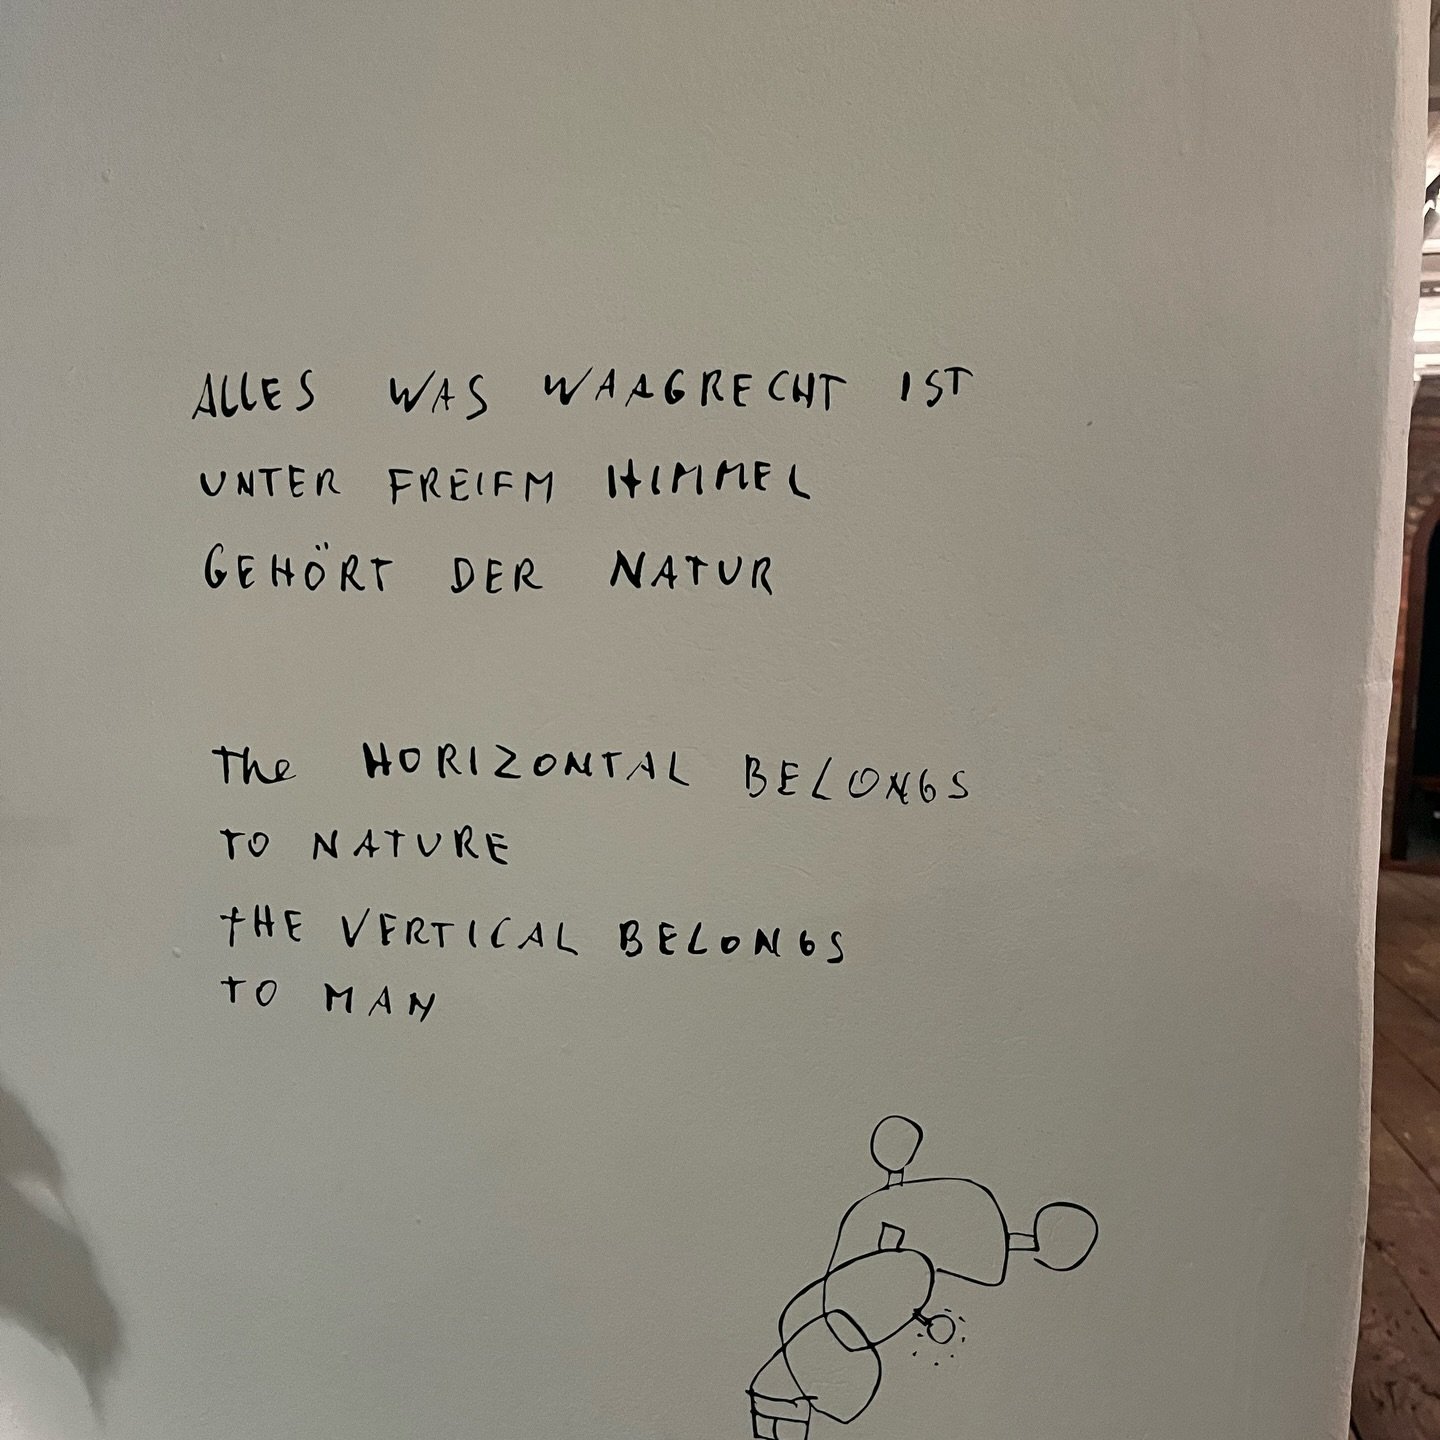 ALLES WAS WAAGRECHT IST
UNTER FREIEM HIMMEL
GEHÖRT DER NATUR
The HORIZONTAL BELONGS
TO NATURE
tHE VERTICAL BELONGS
TO MAN